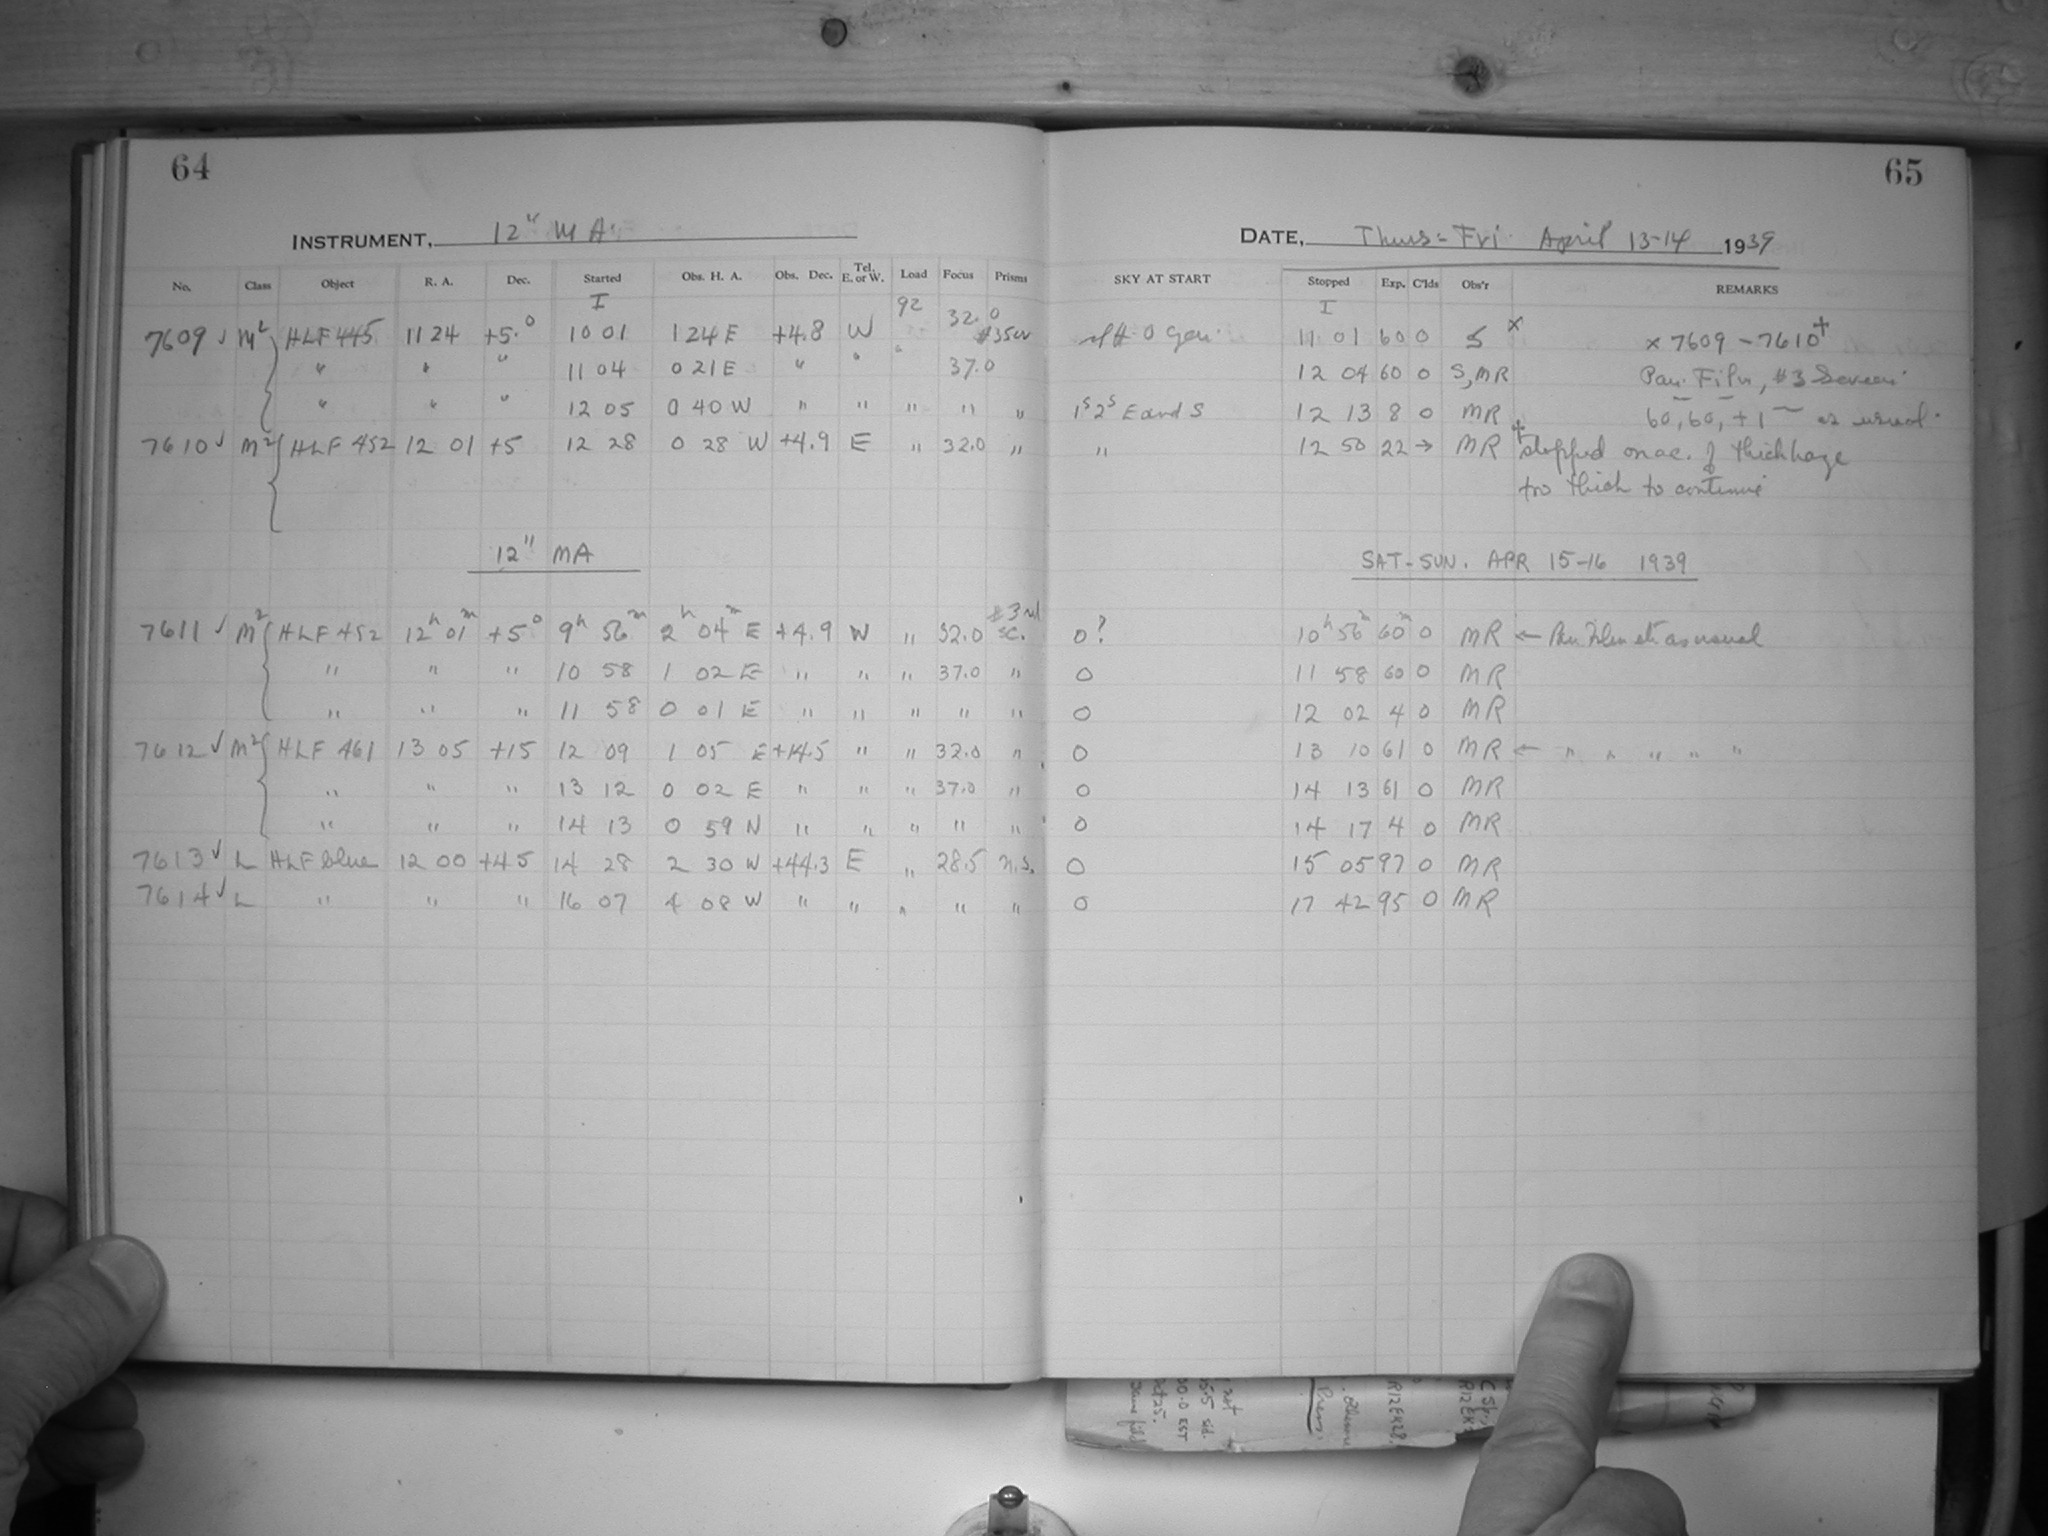 64
65
INSTRUMENT, 12" MA
DATE, Thurs-Fri April 13-14 1939
No. Class Object R. A. Dec. Started Obs. H. A. Obs. Dec. Tel. E. or W. Load Focus Prisms SKY AT START Stopped Exp. C'lds Obs'r REMARKS
I 92 I
7609 ✓ M² HLF 445 11 24 +5.° 10 01 1 24 E +4.8 W " 32.0 11 01 60 0 S x x 7609 - 7610+
" " " 11 04 0 21 E " " 37.0 12 04 60 0 S, MR Pan. Film, #3 Screen
" " " 12 05 0 40 W " " " " " 1ˢ2ˢ E and S 12 13 8 0 MR 60, 60, +1 as usual.
7610 ✓ M² HLF 452 12 01 +5 12 28 0 28 W +4.9 E " 32.0 " " 12 50 22 → MR + stopped on ac. of thick haze
too thick to continue
12" MA
SAT-SUN. APR 15-16 1939
7611 ✓ M² HLF 452 12ʰ 01ᵐ +5° 9ʰ 56ᵐ 2ʰ 04ᵐ E +4.9 W " 32.0 sc. 0? 10ʰ 56ᵐ 60ᵐ 0 MR ← Pan Film etc as usual
" " " 10 58 1 02 E " " " 37.0 " 0 11 58 60 0 MR
" " " 11 58 0 01 E " " " " " 0 12 02 4 0 MR
7612 ✓ M² HLF 461 13 05 +15 12 09 1 05 E +14.5 " " 32.0 " 0 13 10 61 0 MR ← " " " " "
" " " 13 12 0 02 E " " " 37.0 " 0 14 13 61 0 MR
" " " 14 13 0 59 W " " " " " 0 14 17 4 0 MR
7613 ✓ L HLF blue 12 00 +45 14 28 2 30 W +44.3 E " 28.5 n.s. 0 15 05 97 0 MR
7614 ✓ L " " " 16 07 4 08 W " " " " " 0 17 42 95 0 MR